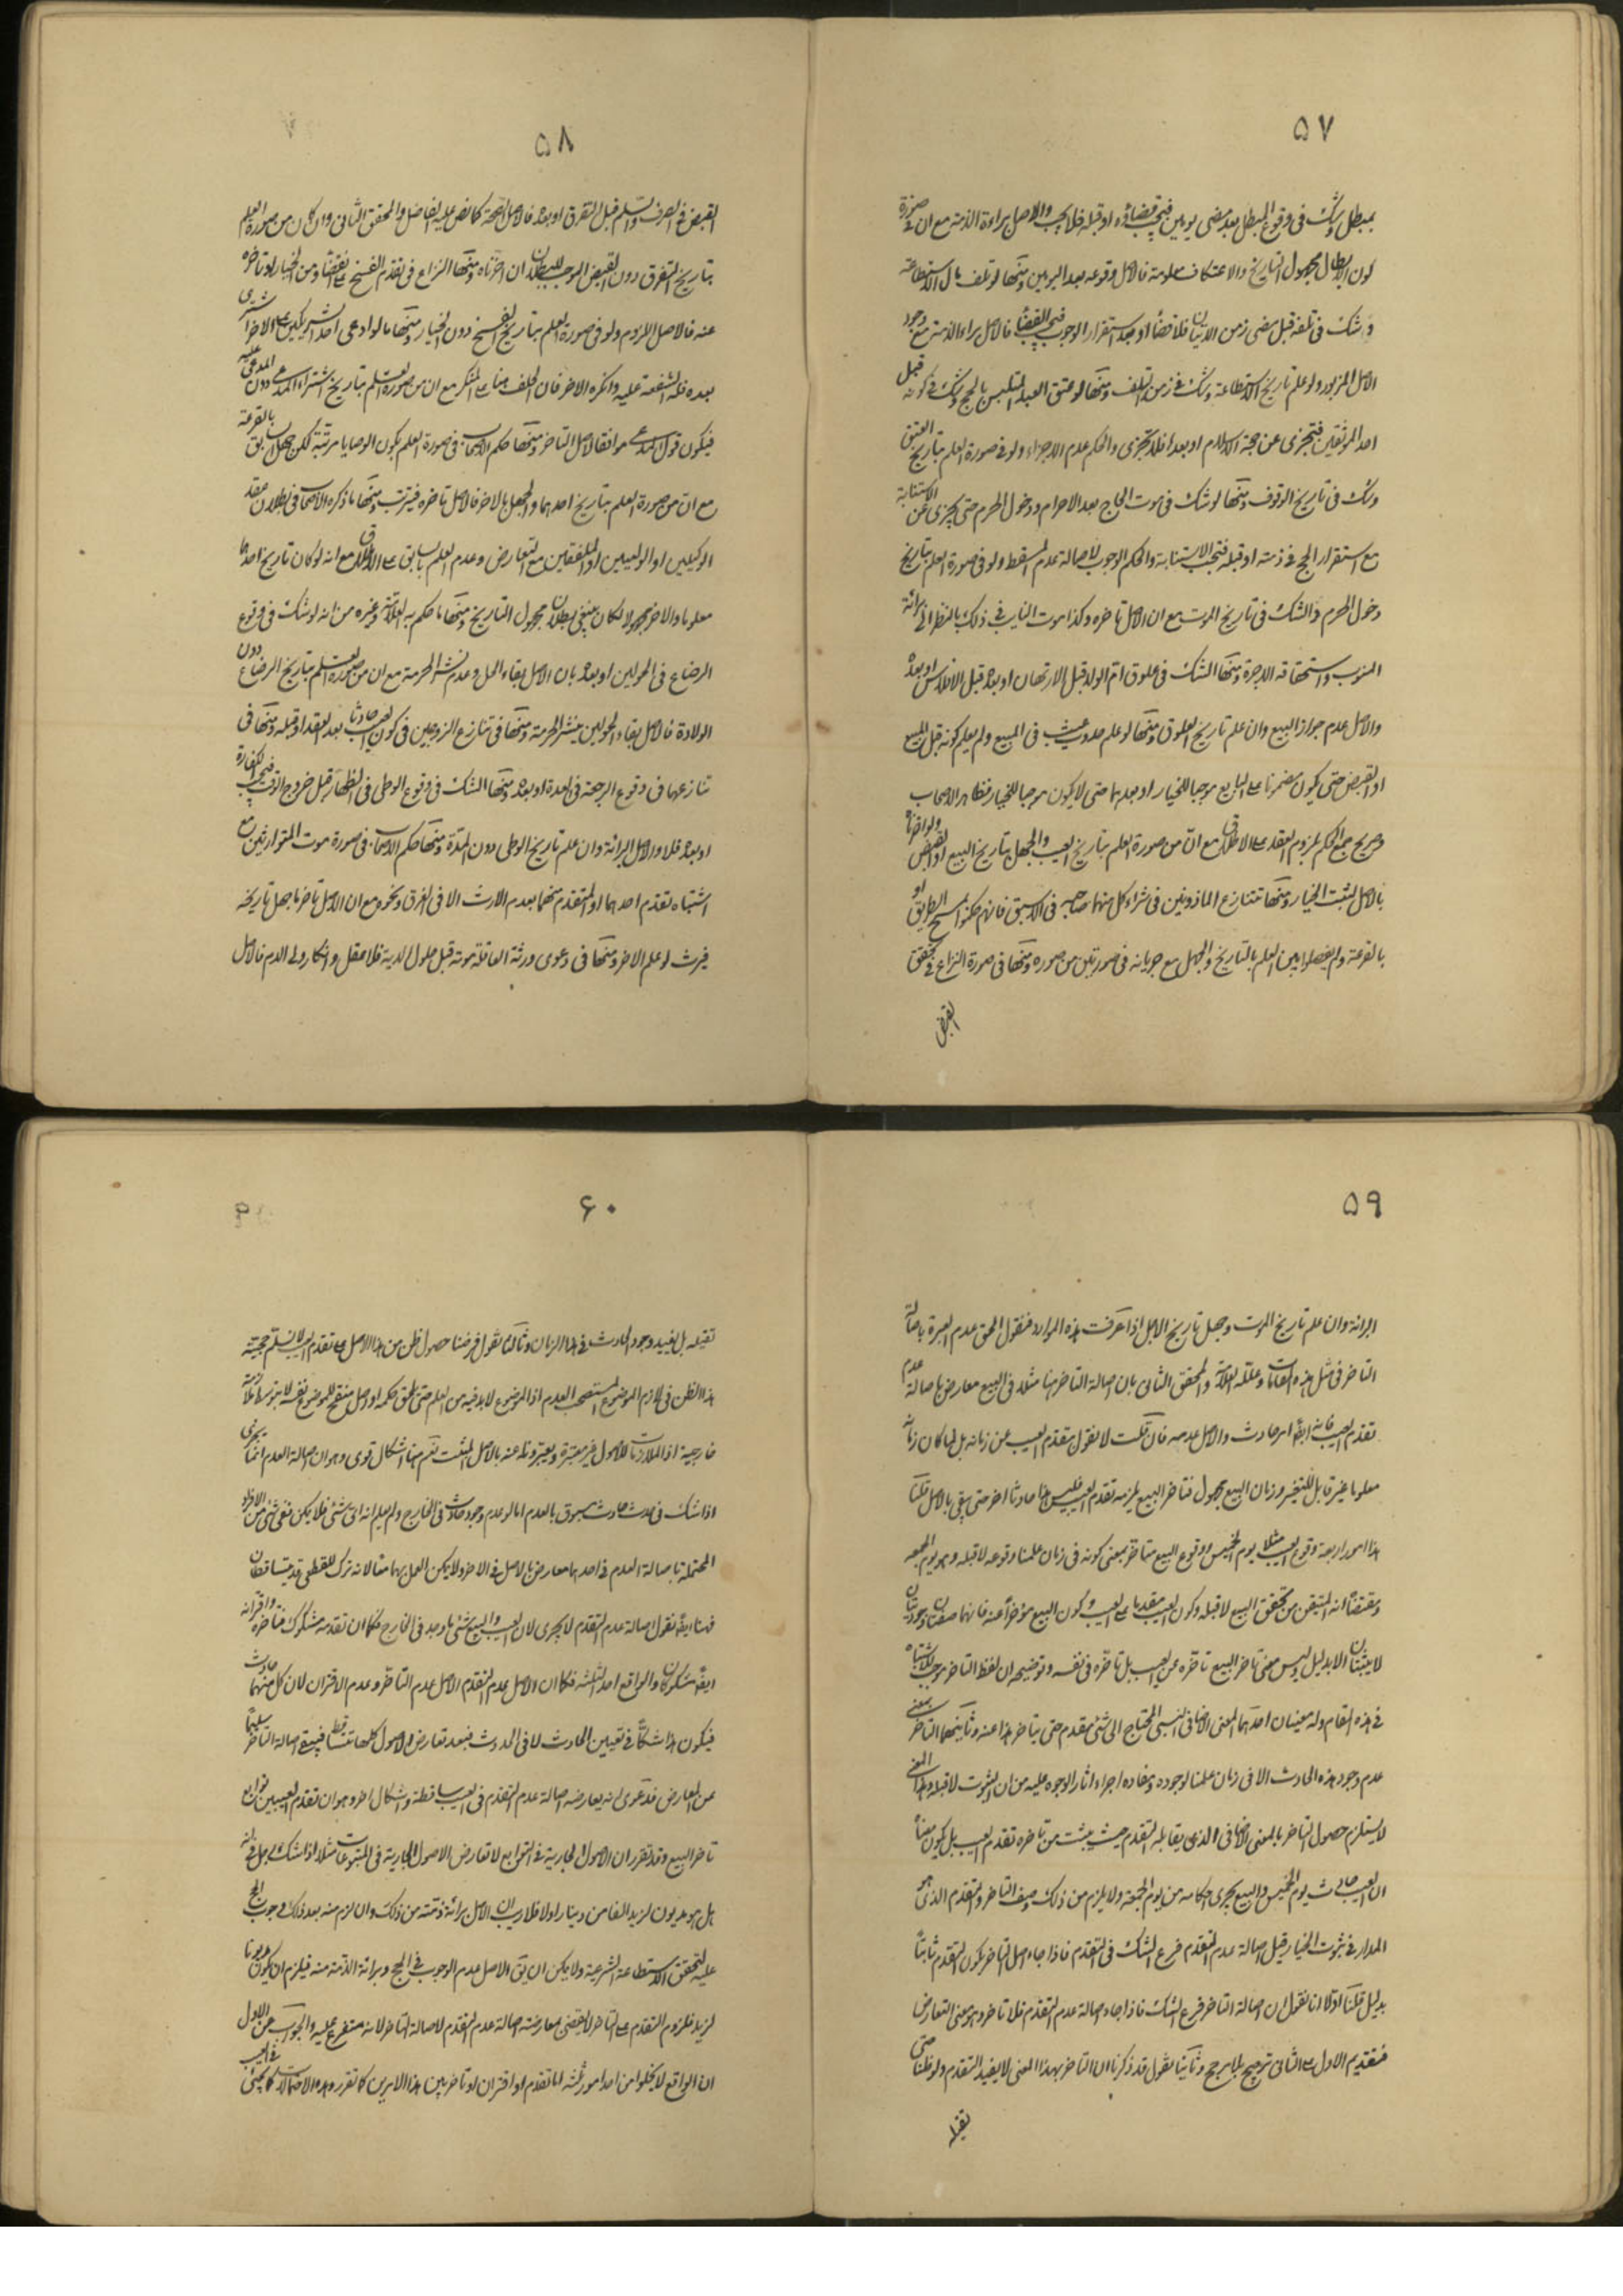 ۵۷
بمبطل وشك فى وقوع المبطل بعد مضى يومين فيجب قضاؤه او قبله فلا يجب والاصل براءة الذمة مع ان فى صورة
كون الابطال مجهول التاريخ والاعتكاف معلومه فالاصل وقوعه بعد اليومين ومنها لو تلف مال الاستطاعة
وشك فى تلفه قبل مضى زمن الاتيان فلا قضاء او بعد استقرار الوجوب فيجب القضاء فالاصل براءة الذمة مع وجود
الاصل المزبور ولو علم تاريخ الاستطاعة وشك فى زمن التلف ومنها لو عتق العبد المتلبس بالحج وشك فى كونه قبل
احد الموقفين فتجزى عن حجة الاسلام او بعده فلا تجزى والحكم عدم الاجزاء ولو فى صورة العلم بتاريخ العتق
وشك فى تاريخ الوقوف ومنها لو شك فى موت الحاج بعد الاحرام ودخول الحرم حتى يجزى عن الاستنابة
مع استقرار الحج فى ذمته او قبله فتجب الاستنابة والحكم الوجوب لاصالة عدم المسقط ولو فى صورة العلم بتاريخ
دخول الحرم والشك فى تاريخ الموت مع ان الاصل تاخره وكذا موت النايب فى ذلك بالنظر الى برائة
المنوب واستحقاقه الاجرة ومنها الشك فى علوق ام الولد قبل الارتهان او بعده قبل الافلاس او بعده
والاصل عدم جواز البيع وان علم تاريخ العلوق ومنها لو علم حدوث عيب فى المبيع ولم يعلم كونه قبل البيع
او القبض حتى يكون مضمونا على البايع موجبا للخيار او بعدهما حتى لا يكون موجبا للخيار فظاهر الاصحاب
وصريح جمع الحكم بلزوم العقد على الاطلاق مع ان من صورة العلم بتاريخ العيب والجهل بتاريخ البيع او القبض ولو اخرناه
بالاصل لثبت الخيار ومنها تنازع الماذونين فى شراء كل منهما صاحبه فى الاسبق فانهم حكموا بمسح الطريق او
بالقرعة ولم يفصلوا بين العلم بالتاريخ والجهل مع جريانه فى صورتين من صوره ومنها فى صورة النزاع فى تحقق
القبض
۵۸
القبض فى الصرف والسلم قبل التفرق او بعده فالاصل الصحة كما نص عليه الفاضل والمحقق الثانى وان كان من صوره العلم
بتاريخ التفرق دون القبض الموجب للبطلان ان اخرناه ومنها النزاع فى تقدم الفسخ على انقضاء زمن الخيار او تاخره
عنه فالاصل اللزوم ولو فى صورة العلم بتاريخ الفسخ دون الخيار ومنها ما لو ادعى احد الشريكين على الاخر انه اشترى
بعده فله الشفعة عليه وانكره الاخر فان الحلف هنا على المنكر مع ان من صوره العلم بتاريخ اشتراء المدعى دون المدعى عليه
فيكون قول المدعى موافقا لاصل التاخر ومنها حكم الاصحاب فى صورة العلم بكون الوصايا مرتبة لكن جهل السابق بالقرعة
مع ان من صوره العلم بتاريخ احدهما والجهل بالاخر فالاصل تاخره فيترتب ومنها ما ذكره الاصحاب فى بطلان عقد
الوكيلين او الوليين او الملفقين مع التعارض وعدم العلم بالسابق على الاطلاق مع انه لو كان تاريخ احدهما
معلوما والاخر مجهولا لكان ينبغى بطلان مجهول التاريخ ومنها ما حكم به العلامة وغيره من انه لو شك فى وقوع
الرضاع فى الحولين او بعده بان الاصل بقاء الحل وعدم نشر الحرمة مع ان من صوره العلم بتاريخ الرضاع دون
الولادة فالاصل بقاء الحولين فينشر الحرمة ومنها فى تنازع الزوجين فى كون العيب حادثا بعد العقد او قبله ومنها فى
تنازعهما فى وقوع الرجعة فى العدة او بعده ومنها الشك فى وقوع الوطى فى الظهار قبل خروج الوقت فتجب الكفارة
او بعده فلا والاصل البرائة وان علم تاريخ الوطى دون المدة ومنها حكم الاصحاب فى صورة موت المتوارثين مع
اشتباه تقدم احدهما او المتقدم منهما بعدم الارث الا فى الغرق ونحوه مع ان الاصل تاخر ما جهل تاريخه
فيرث لو علم الاخر ومنها فى دعوى ورثة العاقلة موته قبل حلول الدية فلا عقل وانكار ولى الدم فالاصل
۵۹
البرائة وان علم تاريخ الموت وجهل تاريخ الاجل اذا عرفت هذه الموارد فنقول الحق عدم العبرة باصالة
التاخر فى مثل هذه المقامات وعلله العلامة والمحقق الثانى بان اصالة التاخر هنا مثلا فى البيع معارض باصالة عدم
تقدم العيب فانه ايضا امر حادث والاصل عدمه فان قلت لا نقول بتقدم العيب عن زمانه بل لما كان زمانه
معلوما غير قابل للتغير وزمان البيع مجهول فتاخر البيع يلزمه تقدم العيب فليس هذا حادثا اخر حتى ينفى بالاصل قلنا
هذا امور اربعة وقوع العيب مثلا يوم الخميس ووقوع البيع متاخرا بمعنى كونه فى زمان علمنا وقوعه لا قبله وهو يوم الجمعه
ومقتضاه انه المتيقن من تحقق البيع لا قبله وكون العيب مقدما على البيع وكون البيع مؤخرا عنه فانهما صفتان وجوديتان
لا يثبتان الا بدليل وليس معنى تاخر البيع تاخره عن العيب بل تاخره فى نفسه وتوضيحه ان لفظ التاخر موجب للاشتباه
فى هذه المقام وله معنيان احدهما المعنى الاضافى النسبى المحتاج الى شئ مقدم حتى يتاخر هذا عنه وثانيهما التاخر بمعنى
عدم وجود هذه الحادث الا فى زمان علمنا لوجوده ومفاده اجراء اثار الوجود عليه من ان الثبوت لا قبله وهذا المعنى
لا يستلزم حصول التاخر بالمعنى الاضافى الذى يقابله التقدم حيث يثبت من تاخره تقدم العيب بل يكون معناه
ان العيب حادث يوم الخميس والبيع يجرى احكامه من يوم الجمعة ولا يلزم من ذلك وصف التاخر والتقدم الذى هو
المدار فى ثبوت الخيار قيل اصالة عدم التقدم فرع الشك فى التقدم فاذا جاء اصل التاخر يكون التقدم ثابتا
بدليل قلنا اولا انا نقول ان اصالة التاخر فرع الشك فاذا جاء اصالة عدم التقدم فلا تاخر وهو معنى التعارض
فتقديم الاول على الثانى ترجيح بلا مرجح وثانيا نقول قد ذكرنا ان التاخر بهذا المعنى لا يفيد التقدم ولو ظنا حتى
۶۰
بل يفيد وجود الحادث فى هذا الزمان وثالثا نقول فرضنا حصول ظن من هذا الاصل على تقدم العيب لا نسلم حجية
هذا الظن فى لازم الموضوع المستصحب العدم اذ الموضوع لا بد فيه من العلم حتى يلحق حكمه او اصل منقح للموضوع نفسه لا بتوسط ملازمة
خارجية اذ الملازمات للاصول غير معتبرة ويعبر عنه بالاصل المثبت نعم هنا اشكال قوى وهو ان اصالة العدم انما يجرى
اذا شك فى حدوث حادث مسبوق بالعدم اما لو علم وجود حادث فى الخارج ولم يعلم انه اى شئ فلا يمكن نفى شئ من الافراد
المحتملة باصالة العدم فى احدها معارض بالاصل فى الاخر ولا يمكن العمل بهما معا لانه ترك للقطعى فيتساقطان
فهنا ايضا نقول اصالة عدم التقدم لا يجرى لان العيب والبيع شئ ما وجد فى الخارج فكما ان تقدمه مشكوك فتاخره واقترانه
ايضا مشكوكان والواقع احد الثلثه فكما ان الاصل عدم التقدم الاصل عدم التاخر وعدم الاقتران لان كل منهما حادث
فيكون هذا شكا فى تعيين الحادث لا فى الحدوث فبعد تعارض الاصول كلها تتساقط فيبقى اصالة التاخر سليما
عن المعارض فدعوى انه يعارضه اصالة عدم التقدم فى العيب ساقطة واشكال اخر وهو ان تقدم العيب من توابع
تاخر البيع وقد تقرر ان الاصول الجارية فى التوابع لا تعارض الاصول الجارية فى المتبوعات مثلا اذا شك رجل فى انه
هل هو مديون لزيد الفا من دينار او لا فلا ريب ان الاصل برائة ذمته من ذلك وان لزم منه بعد ذلك وجوب الحج
عليه لتحقق الاستطاعة الشرعية ولا يمكن ان يق الاصل عدم الوجوب فى الحج وبرائة الذمة منه فيلزم ان يكون مديونا
لزيد فلزوم التقدم على التاخر لا يقتضى معارضة اصالة عدم التقدم لاصالة التاخر لانه متفرع عليه والجواب عن الاول
ان الواقع لا يخلوا من احد امور ثلثه اما تقدم او اقتران او تاخر بين هذا الامرين كما تقرر وهذه الاحتمالات كما يجئ فى العيب